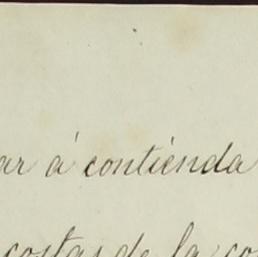 ar á contienda
costas de la co